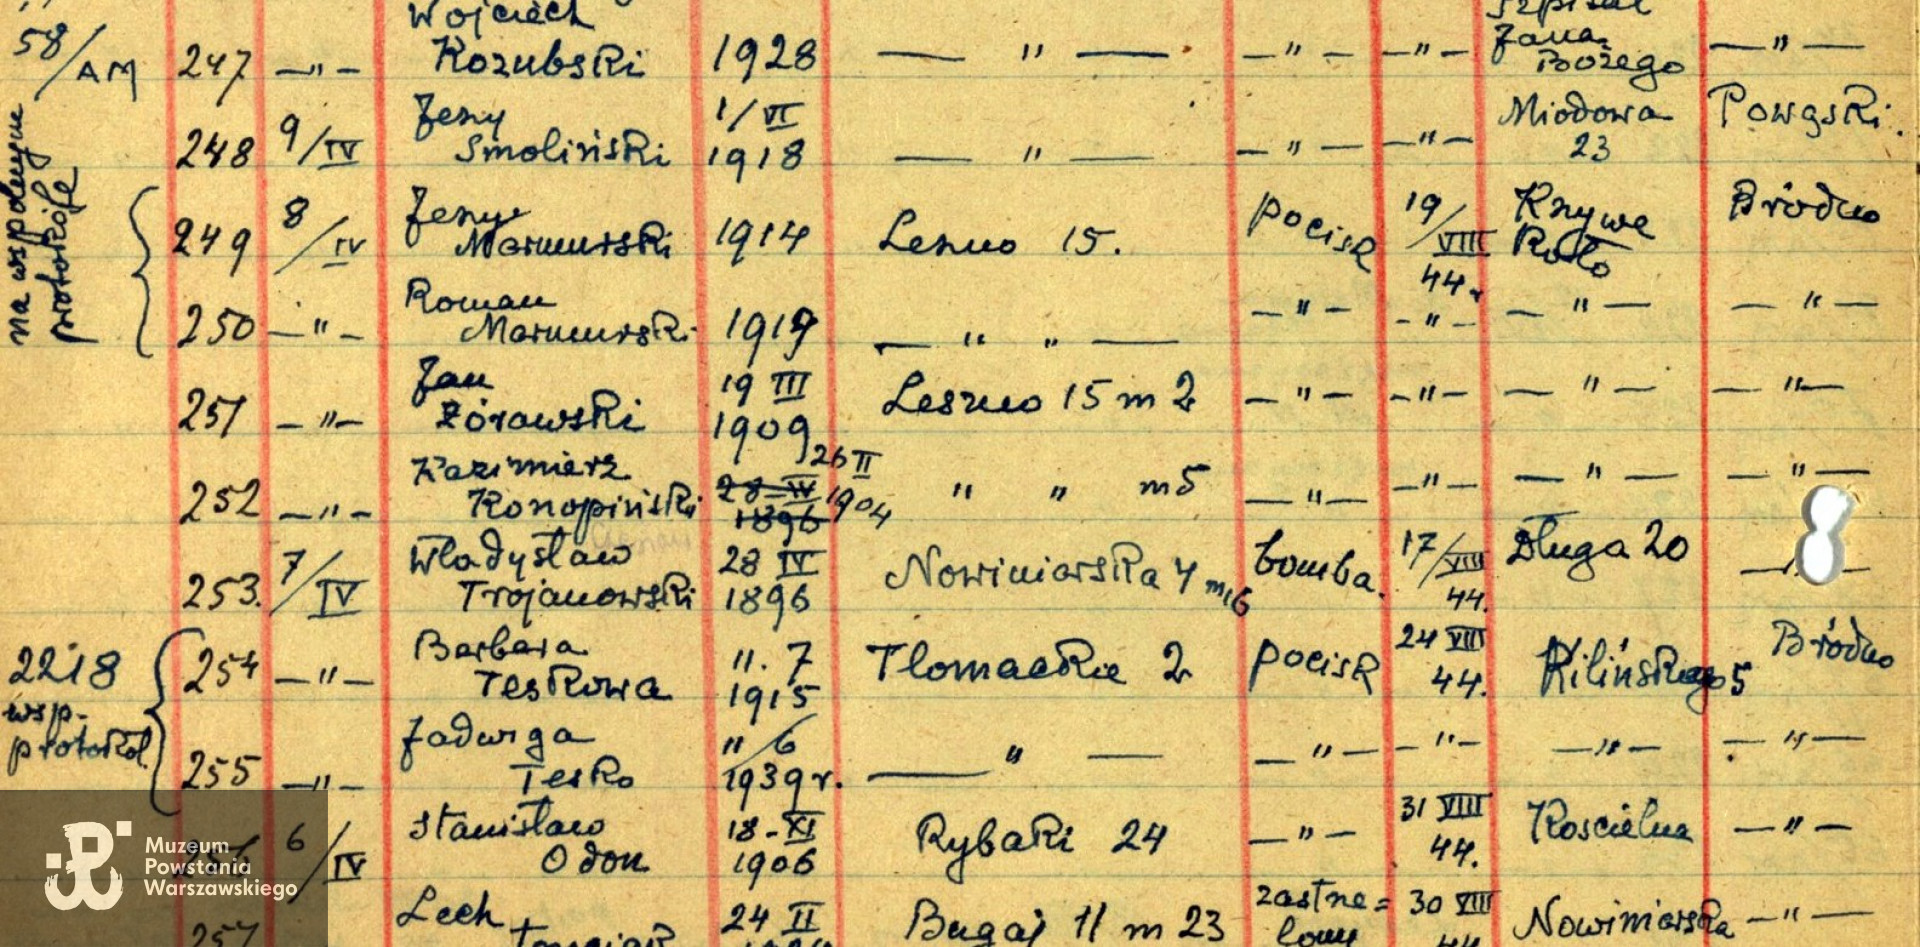 Wojciech Szpital
58/AM 247 —"— Kozubski 1928 — " — —"— —"— Jana Bożego —"—
248 9/IV Jerzy Smoliński 1/VI 1918 — " — —"— —"— Miodowa 23 Powązki.
na wspólnym protokóle
249 8/IV Jerzy Marmurski 1914 Leszno 15. pocisk 19/VIII 44. Krzywe Koło Bródno
250 —"— Roman Marmurski 1919 — " " — —"— —"— —"— —"—
251 —"— Jan Żórawski 19 III 1909 Leszno 15 m 2 —"— —"— —"— —"—
252 —"— Kazimierz Konopiński 28 IV 1896 26 II 1904 " " m 5 —"— —"— —"— —"—
253. 7/IV Władysław Trojanowski 28 IV 1896 Nowiniarska 4 m 6 bomba. 17/VIII 44. Długa 20
2218 wsp. protokół
254 —"— Barbara Teskowa 11. 7 1915 Tłomackie 2 pocisk 24 VIII 44. Kilińskiego 5 Bródno
255 —"— Jadwiga Tesko 11/6 1939 r. — " — —"— —"— —"— —"—
256 6/IV Stanisław Odon 18-XI 1906 Rybaki 24 —"— 31 VIII 44. Koscielna —"—
257 Lech 24 II Bugaj 11 m 23 zastrze= lony 30 VIII 44 Nowiniarska —"—
Muzeum
Powstania
Warszawskiego